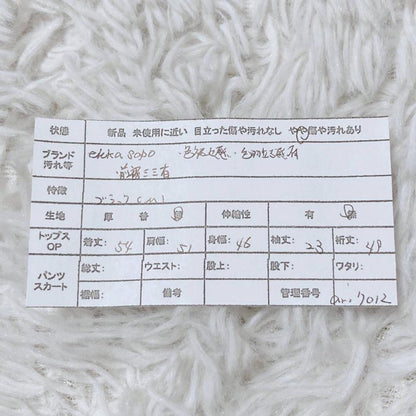 状態 新品 未使用に近い 目立った傷や汚れなし やや傷や汚れあり
ブランド 汚れ等 ehka sopo ・色褪せ感・毛羽立ち感有
前裾シミ有
特徴
生地 厚 普 薄 伸縮性 有 無
トップス OP 着丈: 54 肩幅: 51 身幅: 46 袖丈: 23 裄丈: 49
パンツ スカート 総丈: ウエスト: 股上: 股下: ワタリ:
裾幅: 備考 管理番号 ari7012